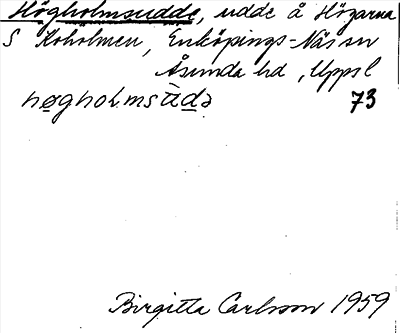 Högholmsudde, udde å Högarna
S Koholmen, Enköpings-Näs sn
Åsunda hd, Uppsl
høghoḷmsùdə 73
Birgitta Carlsson 1959